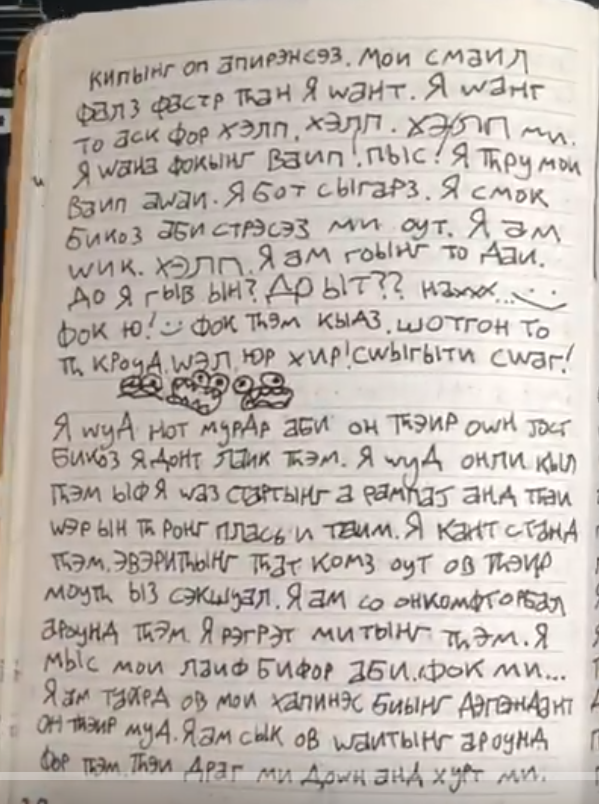 кипынг оп апирэнсэз. мои смаил
фалз фастр тhан я wант. Я wант
то аск фор хэлп. хэлп. хэлп ми.
Я wана фокынг ваип! пыс! Я тhру мои
ваип аwаи. Я бот сыгарз. Я смок
бикоз аби стрэсэз ми оут. Я ам
wик. хэлп. Я ам гоынг то даи.
до я гыв ын? др ыт?? нахxx...
фок ю! фок тhэм кыдз. шотгон то
тh кроуд. wэл, юр хир! сwыгыти сwаг!
Я wуд нот мурдр аби он тhэир оwн јост
бикоз я донт лаик тhэм. Я wуд онли кыл
тhэм ыф я wаз стартынг а рампаյ анд тhеи
wэр ын тh ронг пласъ и таим. Я кант станд
тhэм. эвэритhынг тhат комз оут ов тhэир
моутh ыз сэкшуал. Я ам со онкомфторбал
ароунд тhэм. Я рэгрэт митынг тhэм. Я
мыс мои лаиф бифор аби. фок ми...
Я ам таирд ов мои хапинэс биынг дэпэндэнт
он тhэир муд. Я ам сык ов wаитынг ароунд
фор тhэм. тhэи драг ми доwн анд хурт ми.